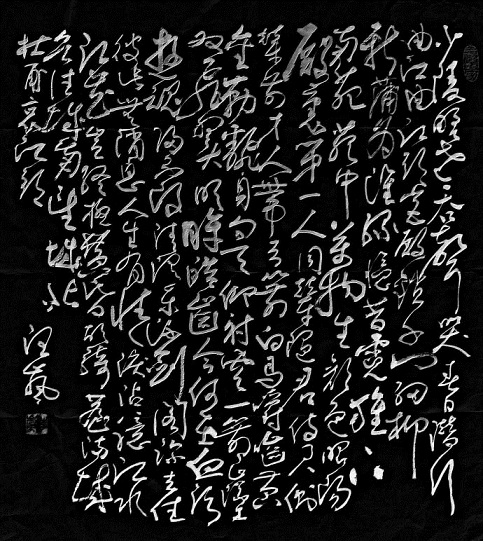 少陵野老吞声哭春日潜行
曲江曲江头宫殿锁千门细柳
新蒲为谁绿忆昔霓旌下
南苑苑中万物生颜色昭阳
殿里第一人同辇随君侍君侧
辇前才人带弓箭白马嚼啮黄
金勒翻身向天仰射云一箭正坠
双飞翼明眸皓齿今何在血污
游魂归不得清渭东流剑阁深去住
彼此无消息人生有情泪沾臆江水
江花岂终极黄昏胡骑尘满城
欲往城南望城北
杜甫哀江头